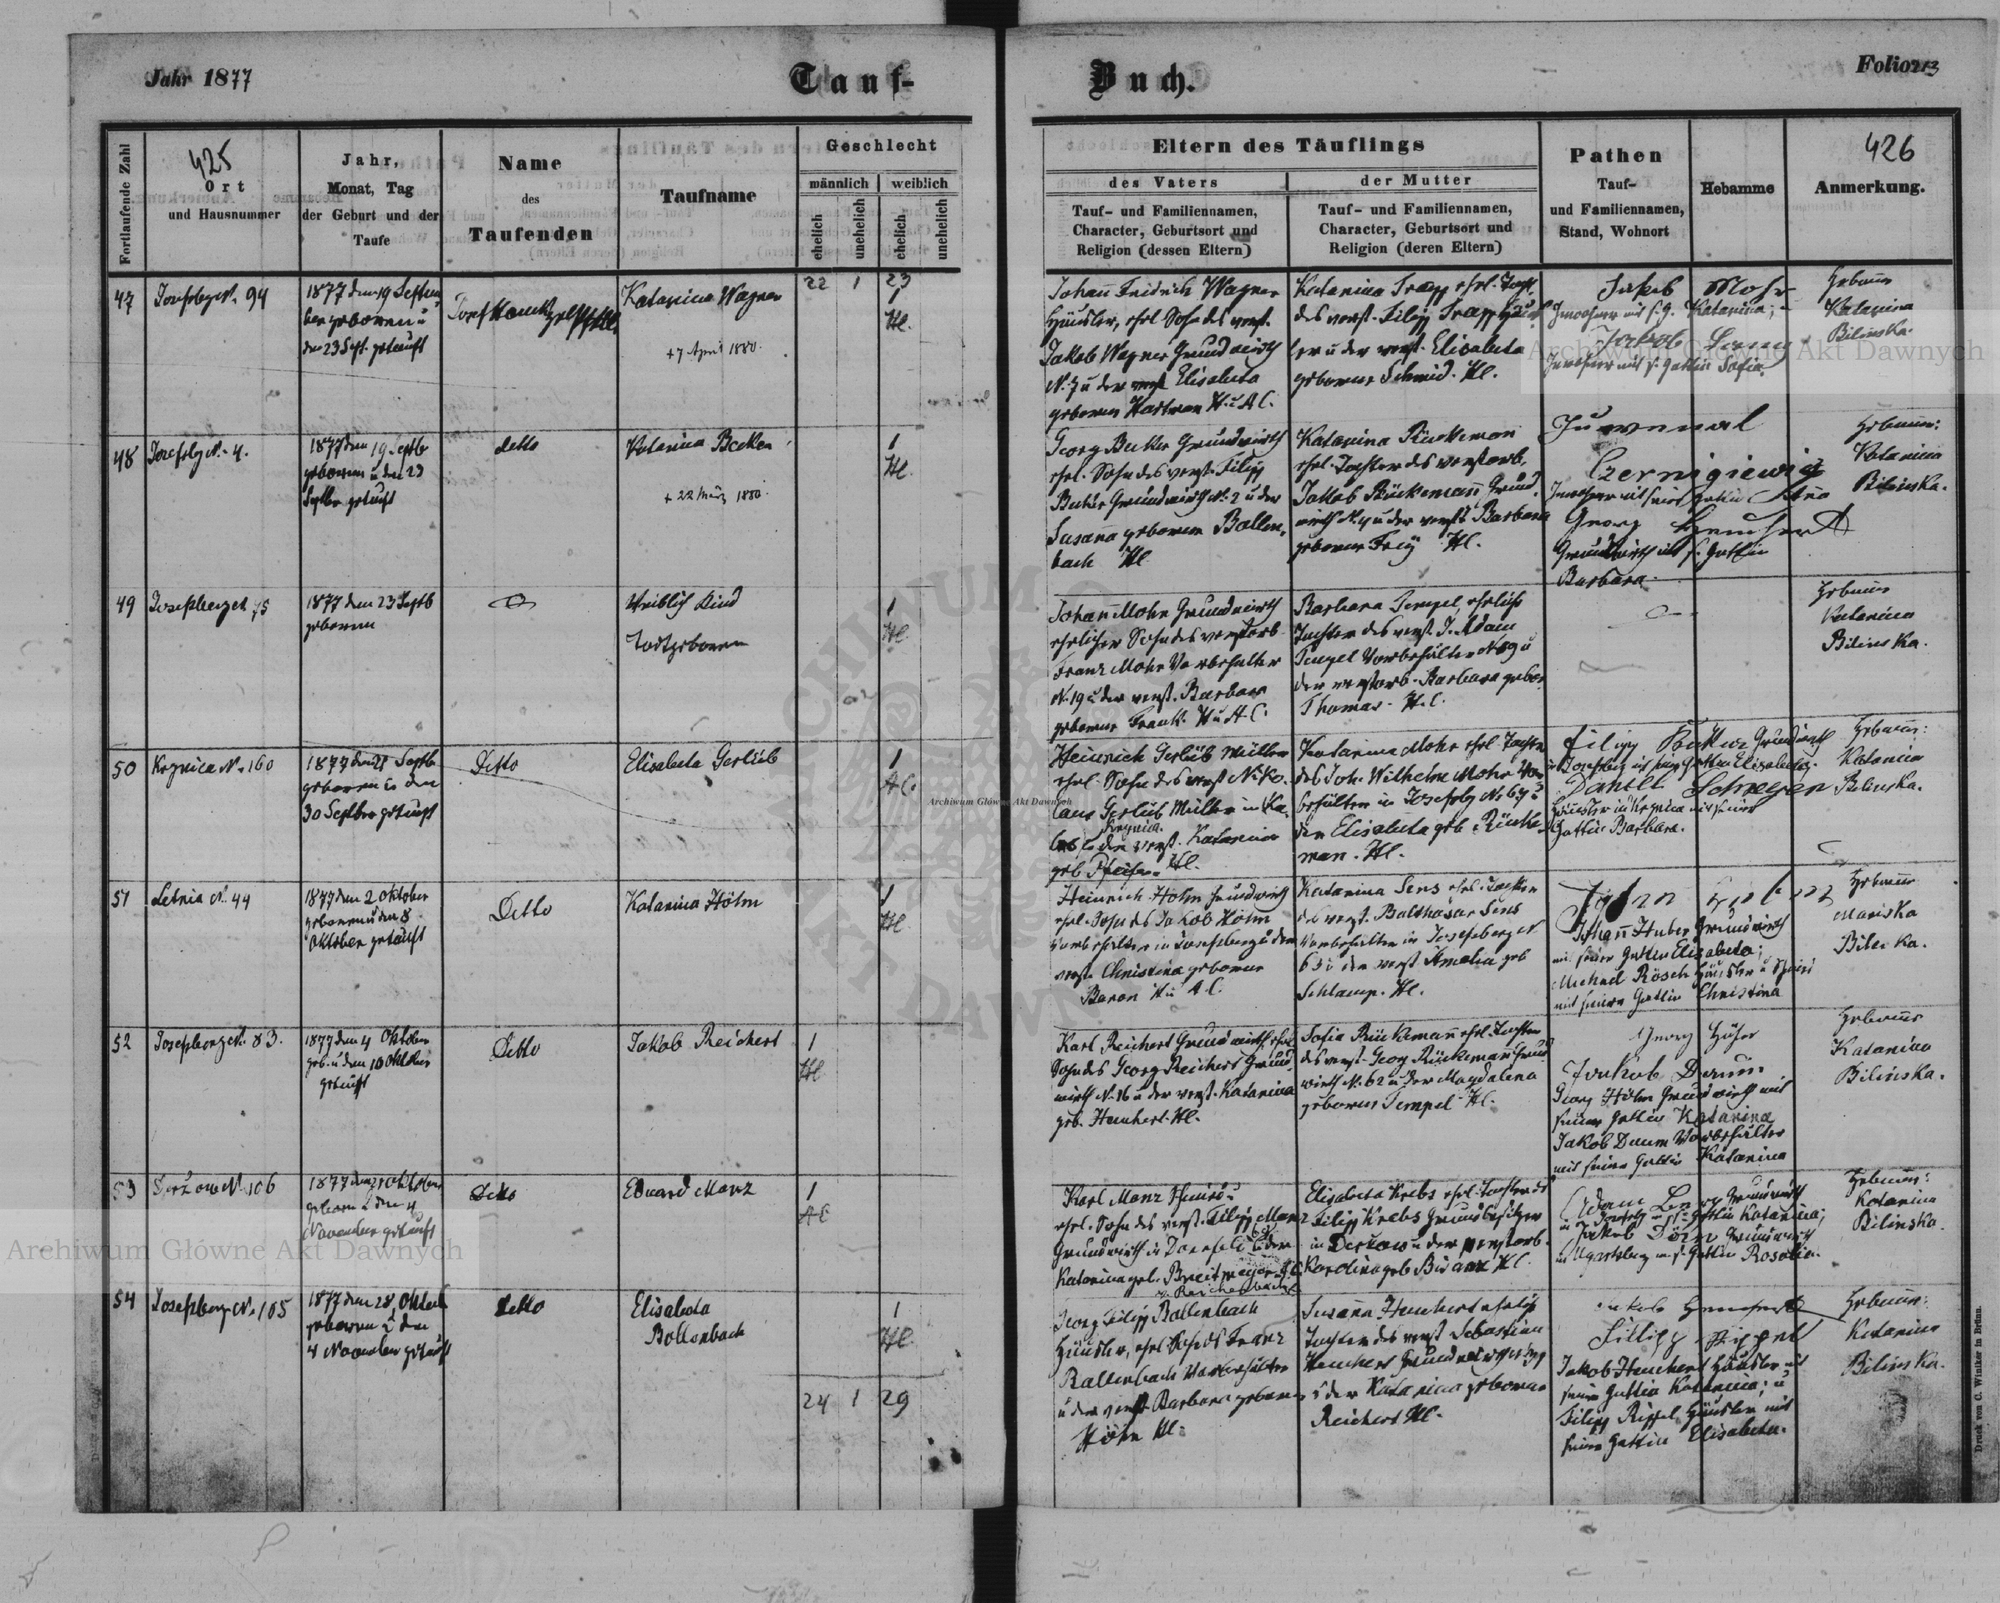 Jahr 1877
Tauf-
Buch.
Folio 213
Fortlaufende Zahl
425
Ort
und Hausnummer
Jahr,
Monat, Tag
der Geburt und der
Taufe
Name
des
Taufenden
Taufname
Geschlecht
männlich
weiblich
ehelich
unehelich
ehelich
unehelich
Eltern des Täuflings
des Vaters
der Mutter
Tauf- und Familiennamen,
Character, Geburtsort und
Religion (dessen Eltern)
Tauf- und Familiennamen,
Character, Geburtsort und
Religion (deren Eltern)
Pathen
Tauf-
und Familiennamen,
Stand, Wohnort
Hebamme
426
Anmerkung.
47
Josefsbg N. 94
1877 den 19 Septem
ber geboren u
den 23 Sept. getauft
Katarina Wagner
+ 7 April 1880.
22 1 23
1
Hl.
Johann Fridrich Wagner
Häusler, ehel. Sohn des verst.
Jakob Wagner Grundwirth
N. 7 u der verst Elisabeta
geborene Hartman H u A C.
Katarina Trapp ehel. Tocht.
des verst. Filipp Trapp
u der verst. Elisabeta
geborene Schmid. Hl.
Jakob Mohr
Katarina;
Jakob
Inwohner mit s. Gattin Sofia.
Hebamme
Katarina
Bilinska.
48
Josefsbg N. 4.
1877 den 19 Septb
geboren u den 23
Septbr getauft
detto
Katarina Becker
+ 22 März 1880.
1
Hl.
Georg Becker Grundwirth
ehel. Sohn des verst. Filipp
Becker Grundwirth N. 2 u der
Susana geborene Bollen-
bach Hl
Katarina Rückeman
ehel. Tochter des verstorb.
Jakob Rückeman Grund-
wirth N. 4 u der verst. Barbara
geborene Frey Hl.
Juwenal
Czernigiewicz
Georg Heuchert
Grundwirth mit s. Gattin
Barbara.
Hebamme:
Katarina
Bilinska.
49
Josefsberg N. 75
1877 den 23 Septb
geboren
Weiblich Kind
Todtgeboren
1
Hl.
Johann Mohr Grundwirth
ehelicher Sohn des verstorb.
Franz Mohr Vorbehalter
N. 19 u der verst. Barbara
geborene Frank. H u A C.
Barbara Tempel, ehliche
Tochter des verst. J. Adam
Tempel Vorbehälter N 89 u
der verstorb. Barbara gebor.
Thomas. H. C.
Hebamme
Katarina
Bilinska.
50
Krynica N. 160
1877 den 27 Septb
geboren u den
30 Septber getauft
Detto
Elisabeta Gerlüb
1
A C.
Heinrich Gerlüb Müller
ehel. Sohn des verst Niko-
laus Gerlüb Müller in
Krynica
u der verst. Katarina
geb Pfeifer. Hl.
Katarina Mohr ehel. Tochter
des Joh. Wilhelm Mohr Vor-
behälter in Josefsbg N. 67 u
der Elisabeta geb. Rücke-
man. Hl.
Filipp Becker Grundwirth
in Josefsbg mit seiner Gattin Elisabeta.
Daniel Schreyer
Häusler in Krynica mit seiner
Gattin Barbara.
Hebamme:
Katarina
Bilinska.
51
Letnia N. 44
1877 den 2 Oktober
geboren u den 8
Oktober getauft
Detto
Katarina Höhn
1
Hl.
Heinrich Höhn Grundwirth
ehel. Sohn des Jakob Höhn
Vorbehälter in Josefsberg u der
verst. Christina geborene
Baron H u A. C.
Katarina Sens ehel. Tochter
des verst. Balthasar Sens
Vorbehälter in Josefsberg N
63 u der verst Amalia geb
Schlamp. Hl.
Johann Huber Grundwirth
mit seiner Gattin Elisabeta;
Michael Rösch Häusler
mit seiner Gattin Christina
Hebamme
Mariska
Bilinka.
52
Josefsberg N. 83.
1877 den 4 Oktober
geb. u den 10 Oktober
getauft
Detto
Jakob Reichert
1
Hl
Karl Reichert Grundwirth, ehel
Sohn des Georg Reichert Grund-
wirth N. 16 u der verst. Katarina
geb. Heuchert. Hl.
Sofia Rückeman ehel. Tochter
des verst. Georg Rückeman Grund-
wirth N. 62 u der Magdalena
geborene Tempel Hl.
Jakob Daum
Georg Höhn Grundwirth mit
seiner Gattin Katarina
Jakob Daum Vorbehälter
mit seiner Gattin Katarina
Hebamme
Katarina
Bilinska.
53
N. 106
geboren u den 4
November getauft
Detto
Eduard Manz
1
A C
Karl Manz Schmid
ehel. Sohn des verst. Filipp Manz
Grundwirth in Dornfeld u der
Katarina geb. Breitmeyer A C.
v. Reichenbach
Elisabeta Krebs ehel. Tochter d.
Filipp Krebs Grundbesitzer
in u der verstorb.
Karolina geb Bisanz Hl.
Adam Grundwirth
in Josefsbg u s. Gattin Katarina;
Jakob Dörn Grundwirth
in Ugartsberg u s. Gattin Rosalia.
Hebamme:
Katarina
Bilinska.
54
Josefsberg N. 105
1877 den 28 Oktob
geboren u den
4 November getauft
Detto
Elisabeta
Bollenbach
1
Hl.
24 1 29
Georg Filipp Bollenbach
Häusler, ehel. Sohn des Franz
Bollenbach Vorbehälter
u der verst Barbara geborene
Höhn Hl.
Susana Heuchert ehelich
Tochter des verst Sebastian
Heuchert Grundwirth
u der Katarina geborene
Reichert Hl.
Jakob Heuchert
Fillipp Rippel
Jakob Heuchert Häusler mit
seiner Gattin Katarina; u
Filipp Rippel Häusler mit
seiner Gattin Elisabeta.
Hebamme:
Katarina
Bilinska.
Druck von C. Winiker in Brünn.
Archiwum Główne Akt Dawnych
Archiwum Główne Akt Dawnych
Archiwum Główne Akt Dawnych